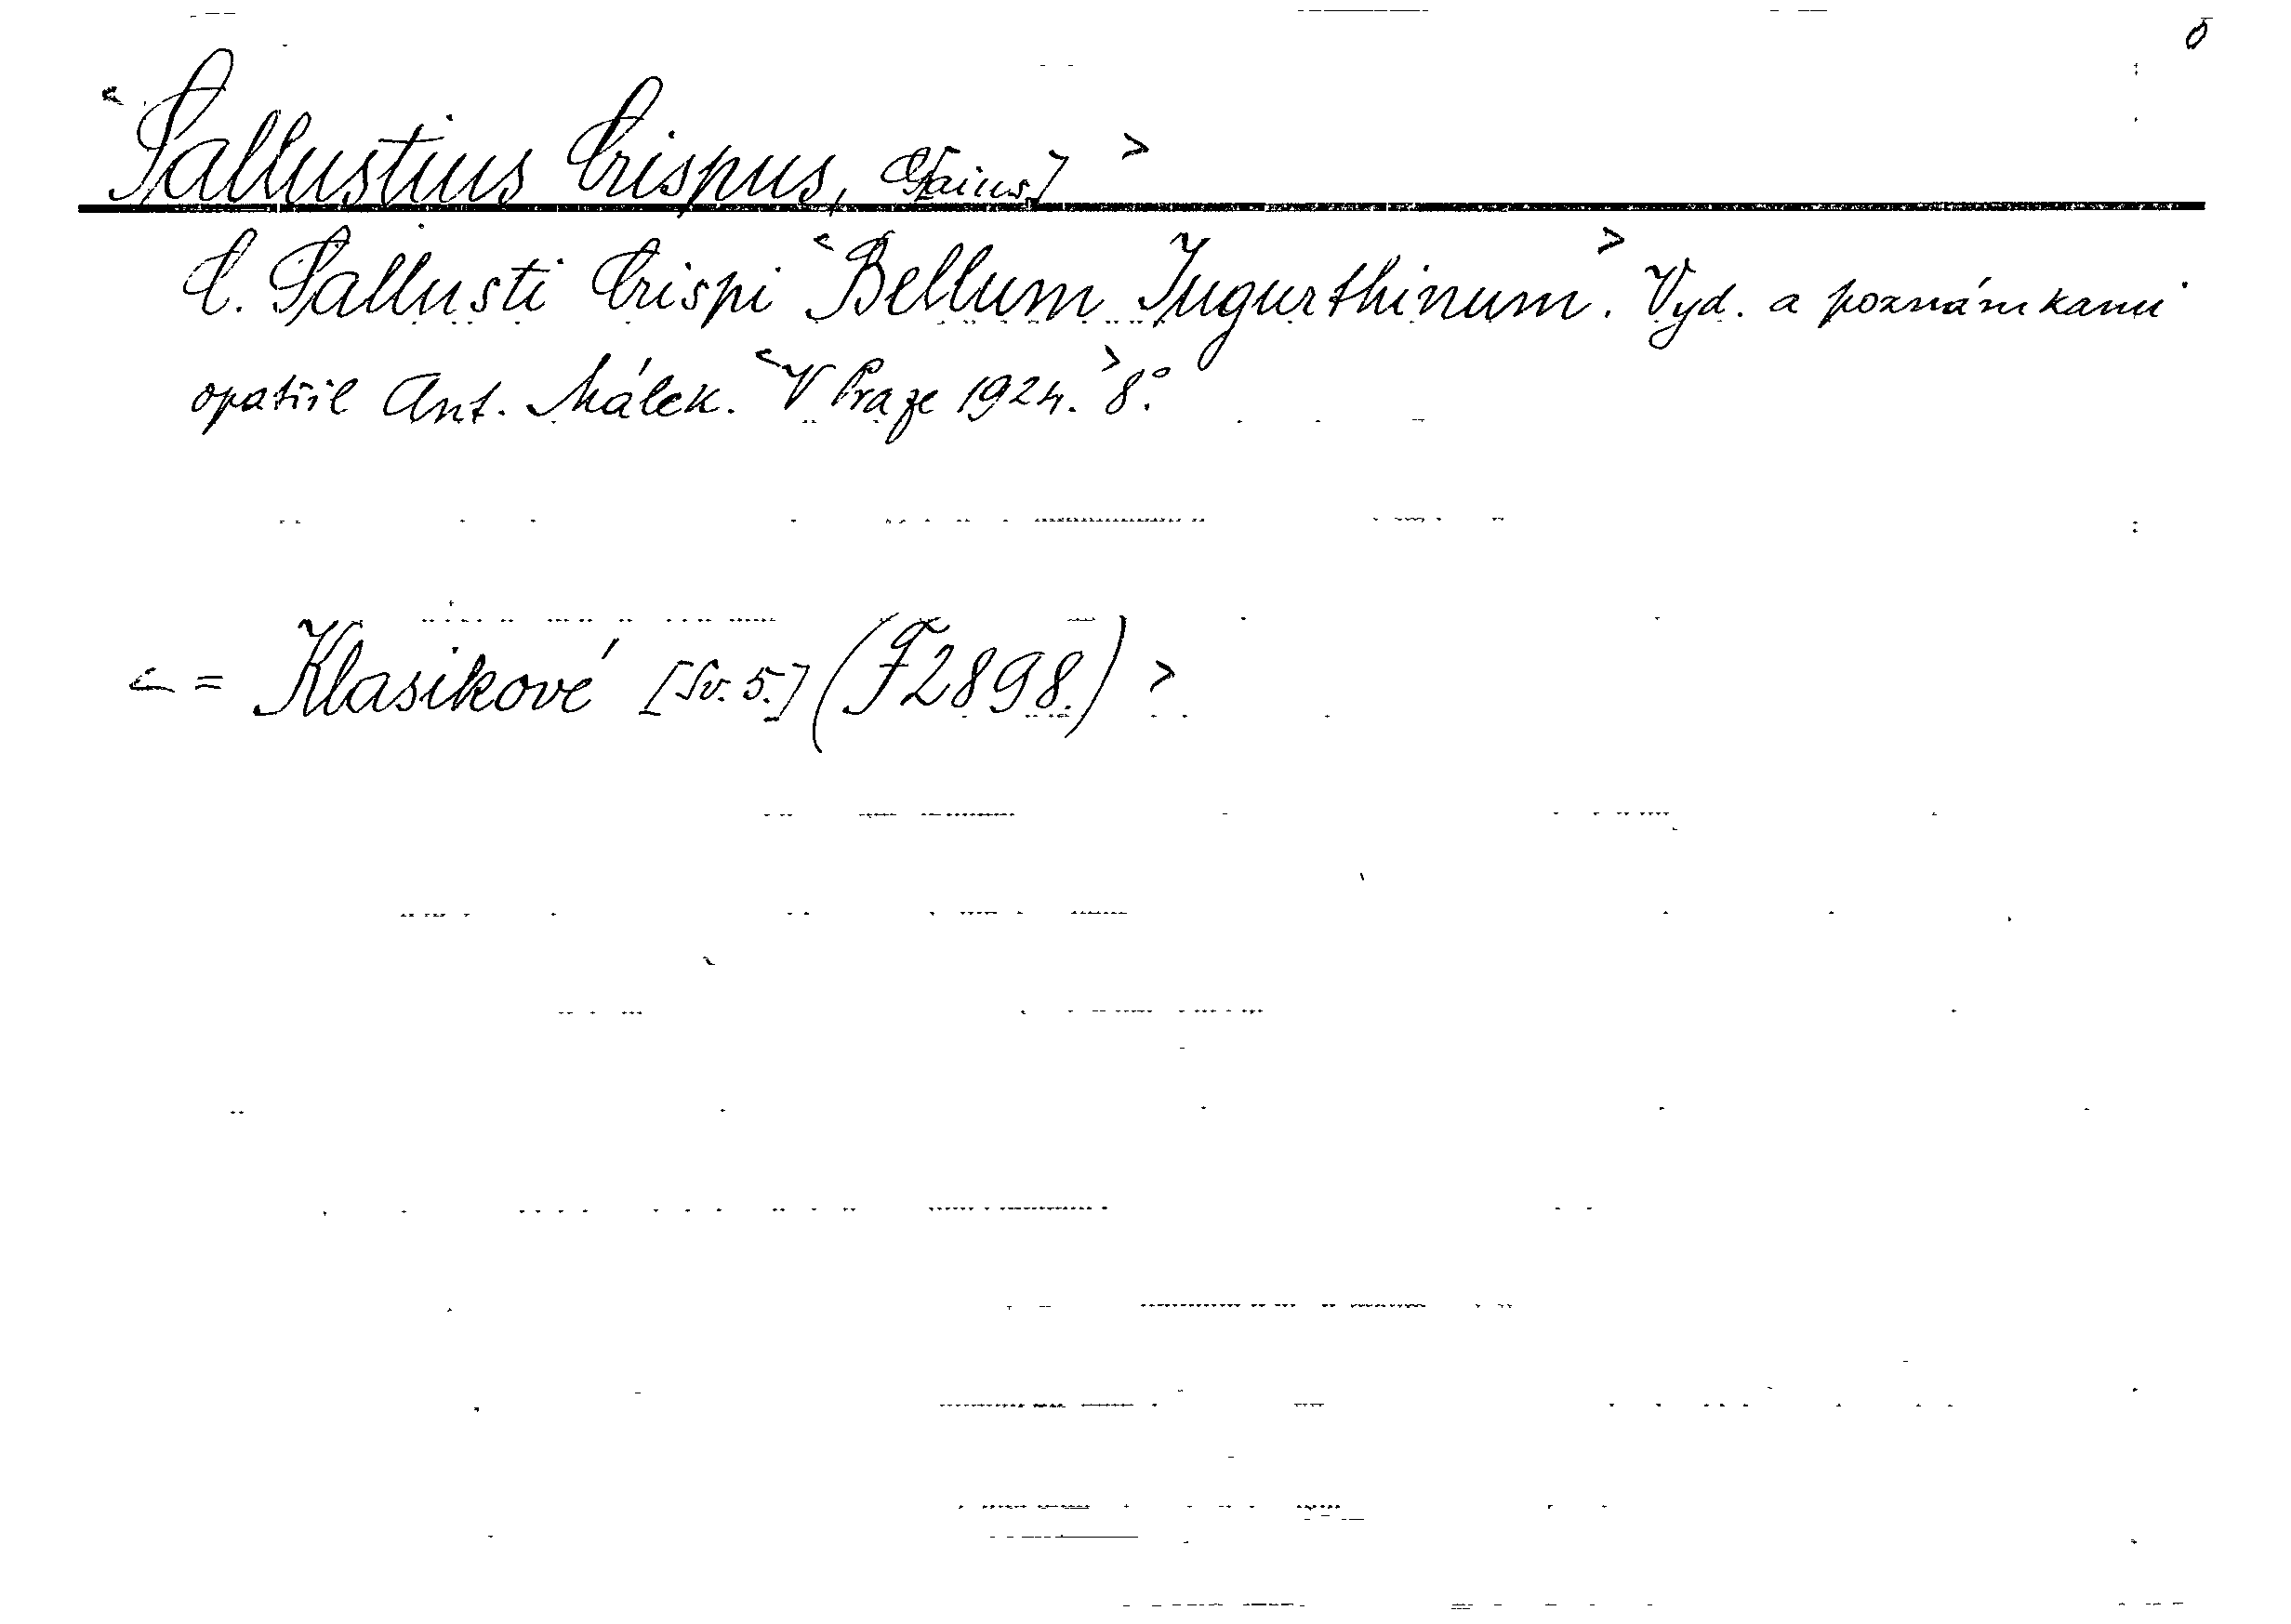 <Sallustius Crispus, G[aius] >
C. Sallusti Crispi <Bellum Jugurthinum>. Vyd. a poznámkami
opatřil Ant. Málek. <V Praze 1924.> 8°.
< = Klasikové [Sv. 5.] (F2898.) >